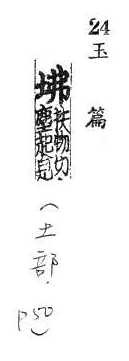 24
玉篇
坲扶物切
塵起皃
（土部．
p50）